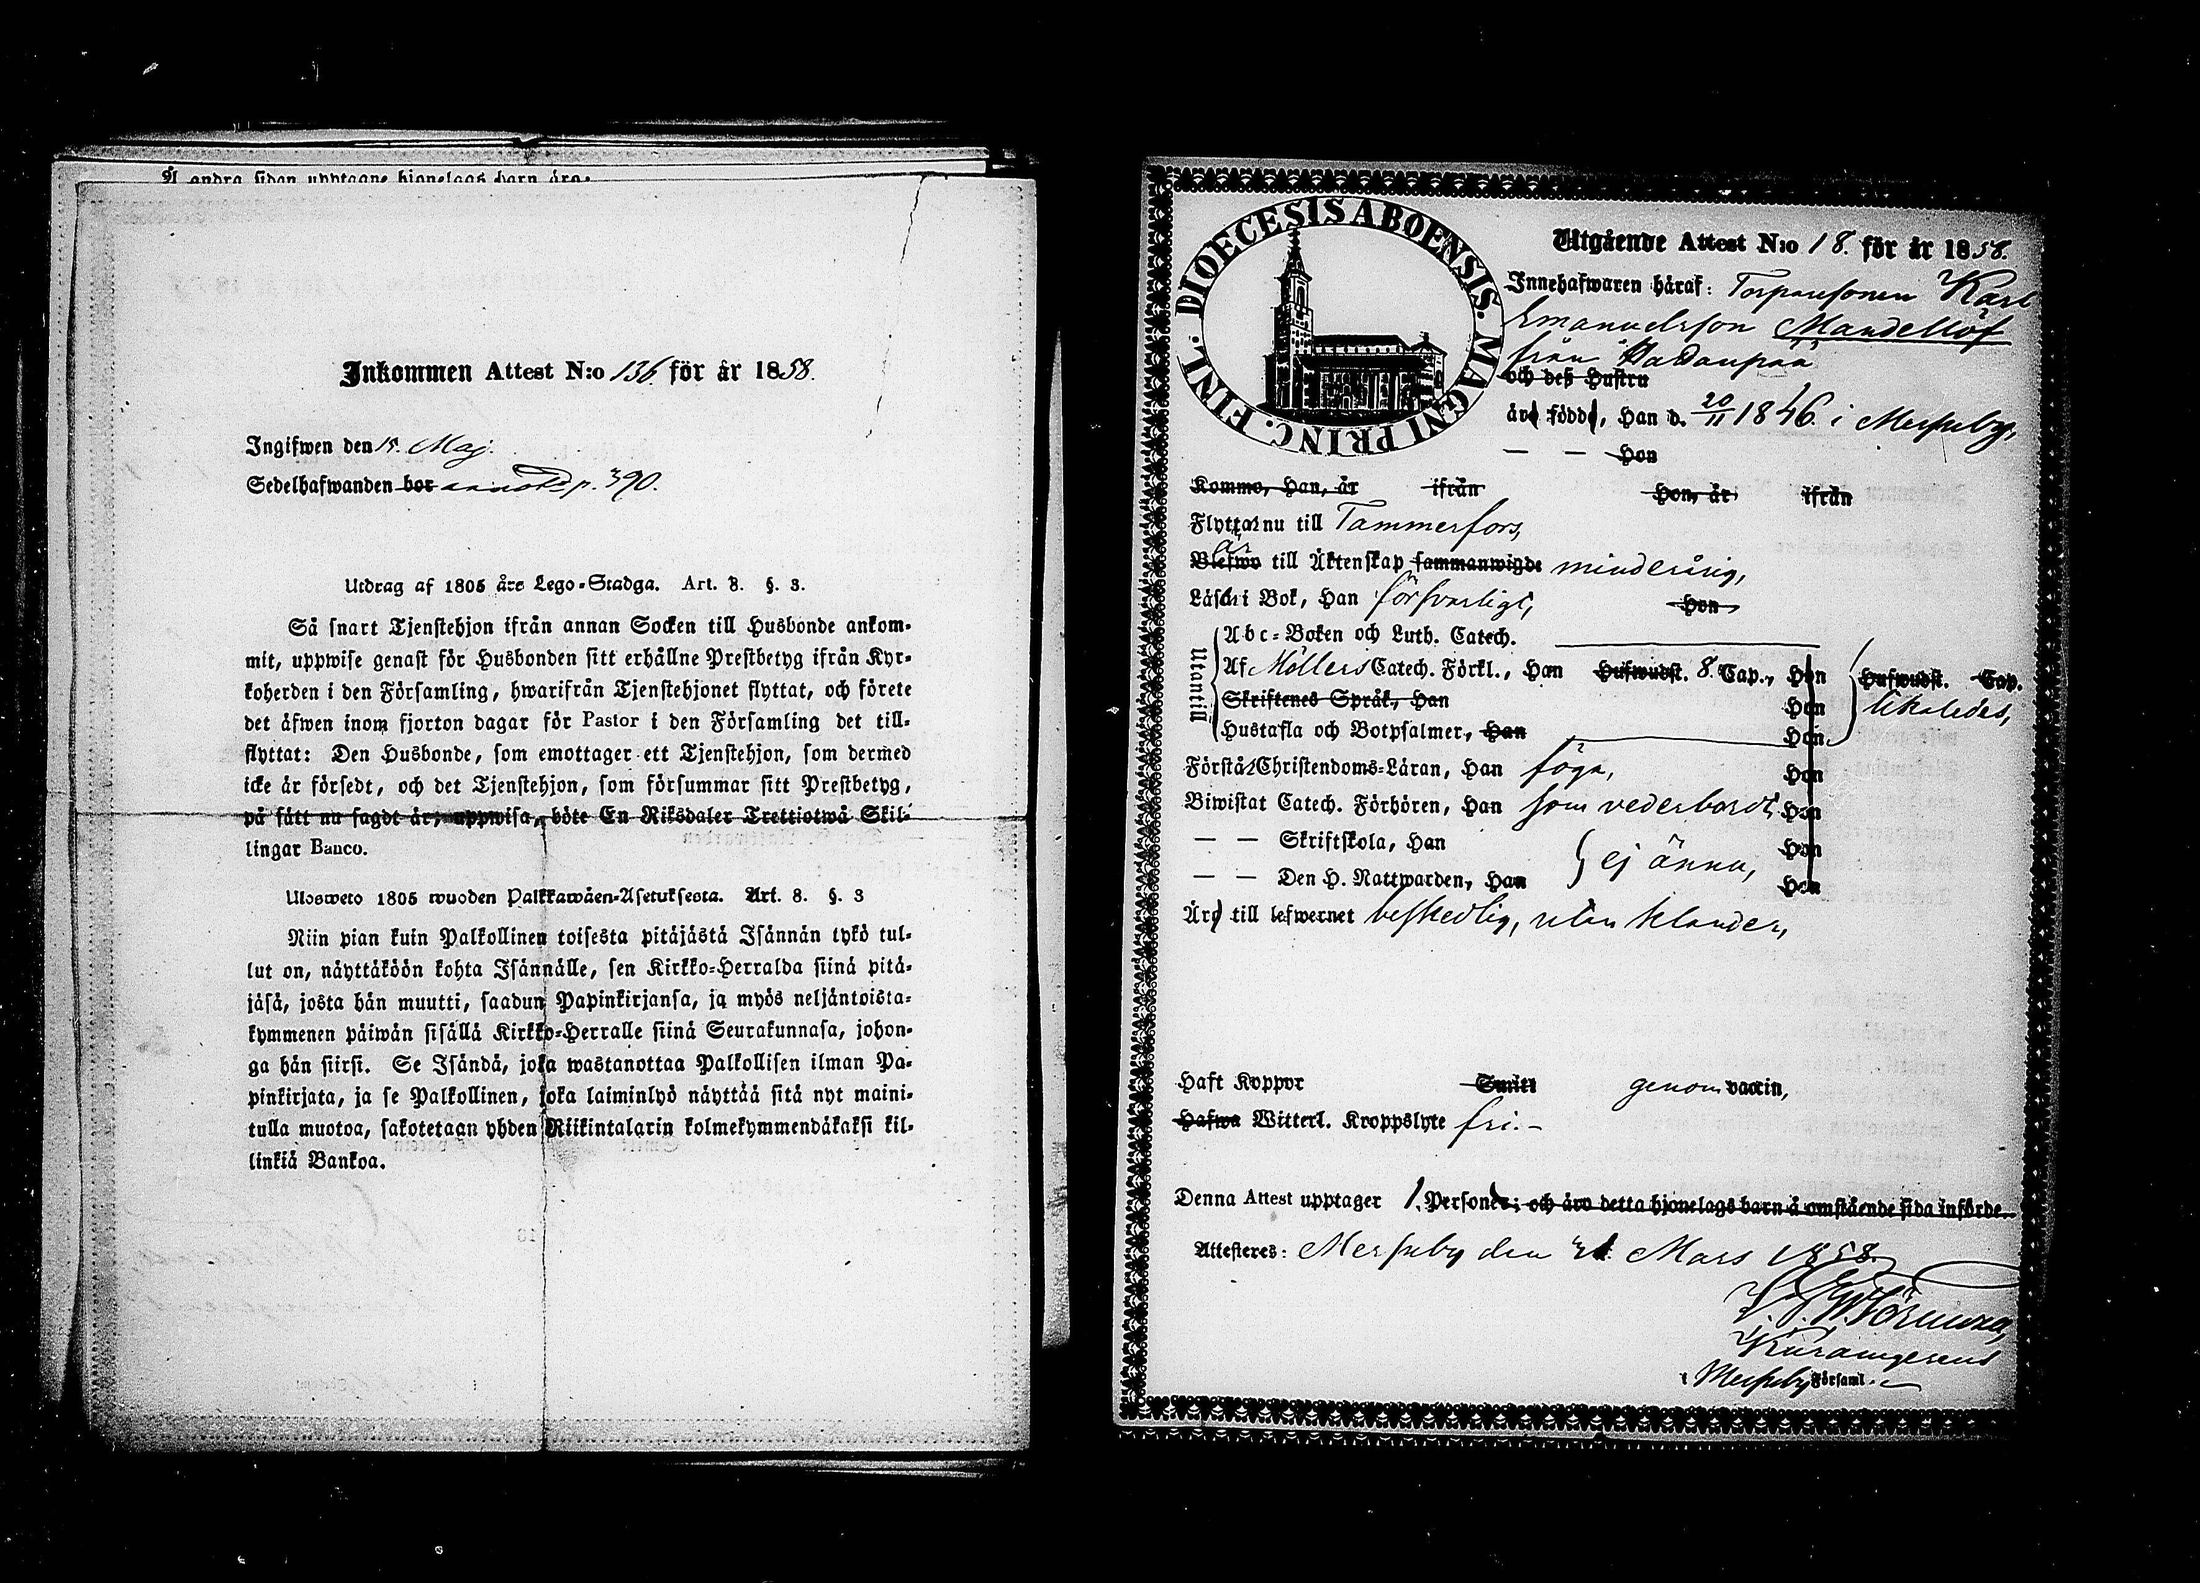 Å andra sidan upptagne hionelags barn äro:
Inkommen Attest N:o 136. för år 1858.
Ingifwen den 15. Maj.
Sedelhafwanden bor p. 390.
Utdrag af 1805 års Lego-Stadga. Art. 8. §. 3.
Så snart Tjenstehjon ifrån annan Socken till Husbonde ankom-
mit, uppwise genast för Husbonden sitt erhållne Prestbetyg ifrån Kyr-
koherden i den Församling, hwarifrån Tjenstehjonet flyttat, och förete
det äfwen inom fjorton dagar för Pastor i den Församling det till-
flyttat: Den Husbonde, som emottager ett Tjenstehjon, som dermed
icke är försedt, och det Tjenstehjon, som försummar sitt Prestbetyg,
på sätt nu sagdt är, uppwisa, böte En Riksdaler Trettiotwå Skil-
lingar Banco.
Ulosweto 1805 wuoden Palkkawäen-Asetuksesta. Art. 8. §. 3
Niin pian kuin Palkollinen toisesta pitäjästä Isännän tykö tul-
lut on, näyttäköön kohta Isännälle, sen Kirkko-Herralda siinä pitä-
jäsä, josta hän muutti, saadun Papinkirjansa, ja myös neljäntoista-
kymmenen päiwän sisällä Kirkko-Herralle siinä Seurakunnasa, johon-
ga hän siirsi. Se Isändä, joka wastanottaa Palkollisen ilman Pa-
pinkirjata, ja se Palkollinen, joka laiminlyö näyttää sitä nyt maini-
tulla muotoa, sakotetaan yhden Riikintalarin kolmekymmendäkaksi kil-
linkiä Bankoa.
DIOECESIS ABOENSIS. MAGNI PRINC. FINL.
Utgående Attest N:o 18. för år 1858.
Innehafwaren häraf: Torparesonen Karl
Emanuelsson Mandellöf
från
och deß Hustru
äro födde, Han d. 20/11 1846. i Messuby,
— — Hon
Kommo, Han, år ifrån Hon, år ifrån
Flyttar nu till Tammerfors,
är
Blefwo till Äktenskap sammanwigde minderårig,
Läser i Bok, Han försvarligt, Hon
Utantill
Abc-Boken och Luth. Catech.
Af Möllers Catech. Förkl., Han Hufwudst. 8. Cap., Hon Hufwudst. Cap.
Skriftenes Språk, Han Hon likaledes,
Hustafla och Botpsalmer, Han Hon
Förstår Christendoms-Läran, Han föga, Hon
Biwistat Catech. Förhören, Han som vederbordt, Hon
— — Skriftskola, Han Hon
ej änna,
— — Den H. Nattwarden, Han Hon
Äro till lefwernet beskedlig, utan klander,
Haft Koppor Smitt genom vaccin,
Hafwa Witterl. Kroppslyte fri. -
Denna Attest upptager 1. Personer; och äro detta hjonelags barn å omstående sida införde.
Attesteres: Messuby den Mars 1858.
i Messuby Församl.